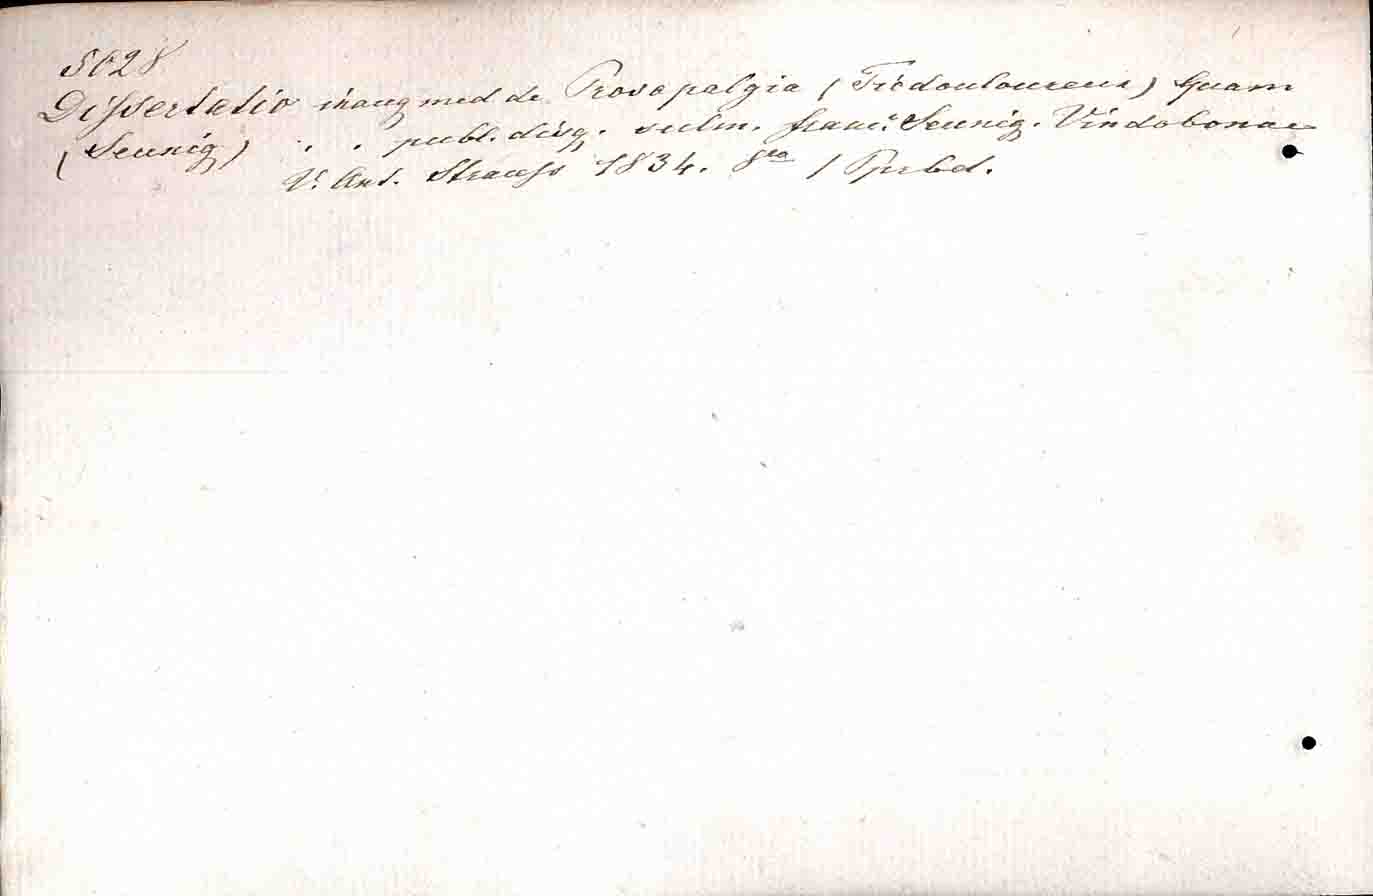 5028
Dissertatio inaug med de Prosopalgia (Ticdouloureux) Quam
(Seunig) . . publ. disq. subm. Franc. Seunig. Vindobonae
V. Ant. Strauss 1834. 8vo / Pprbd.